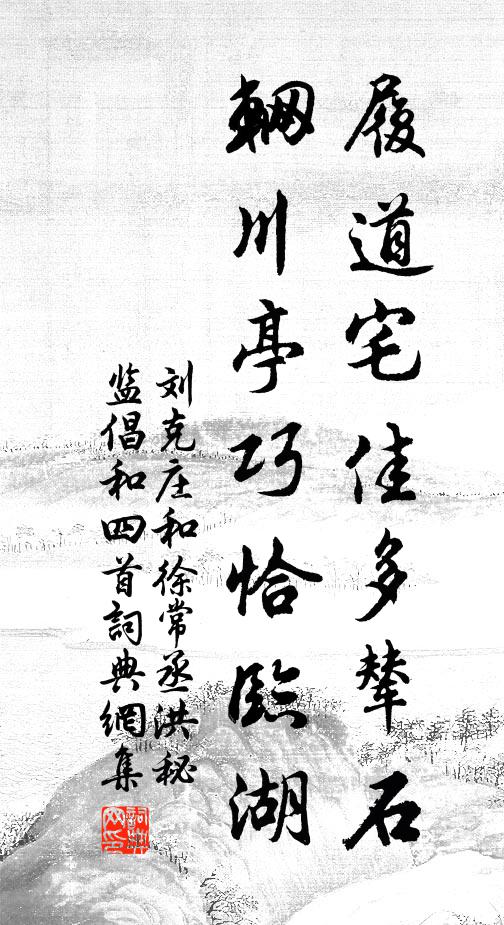 履道宅佳多辇石
輞川亭巧恰臨湖
刘克庄和徐常丞洪秘
监倡和四首詞典網集